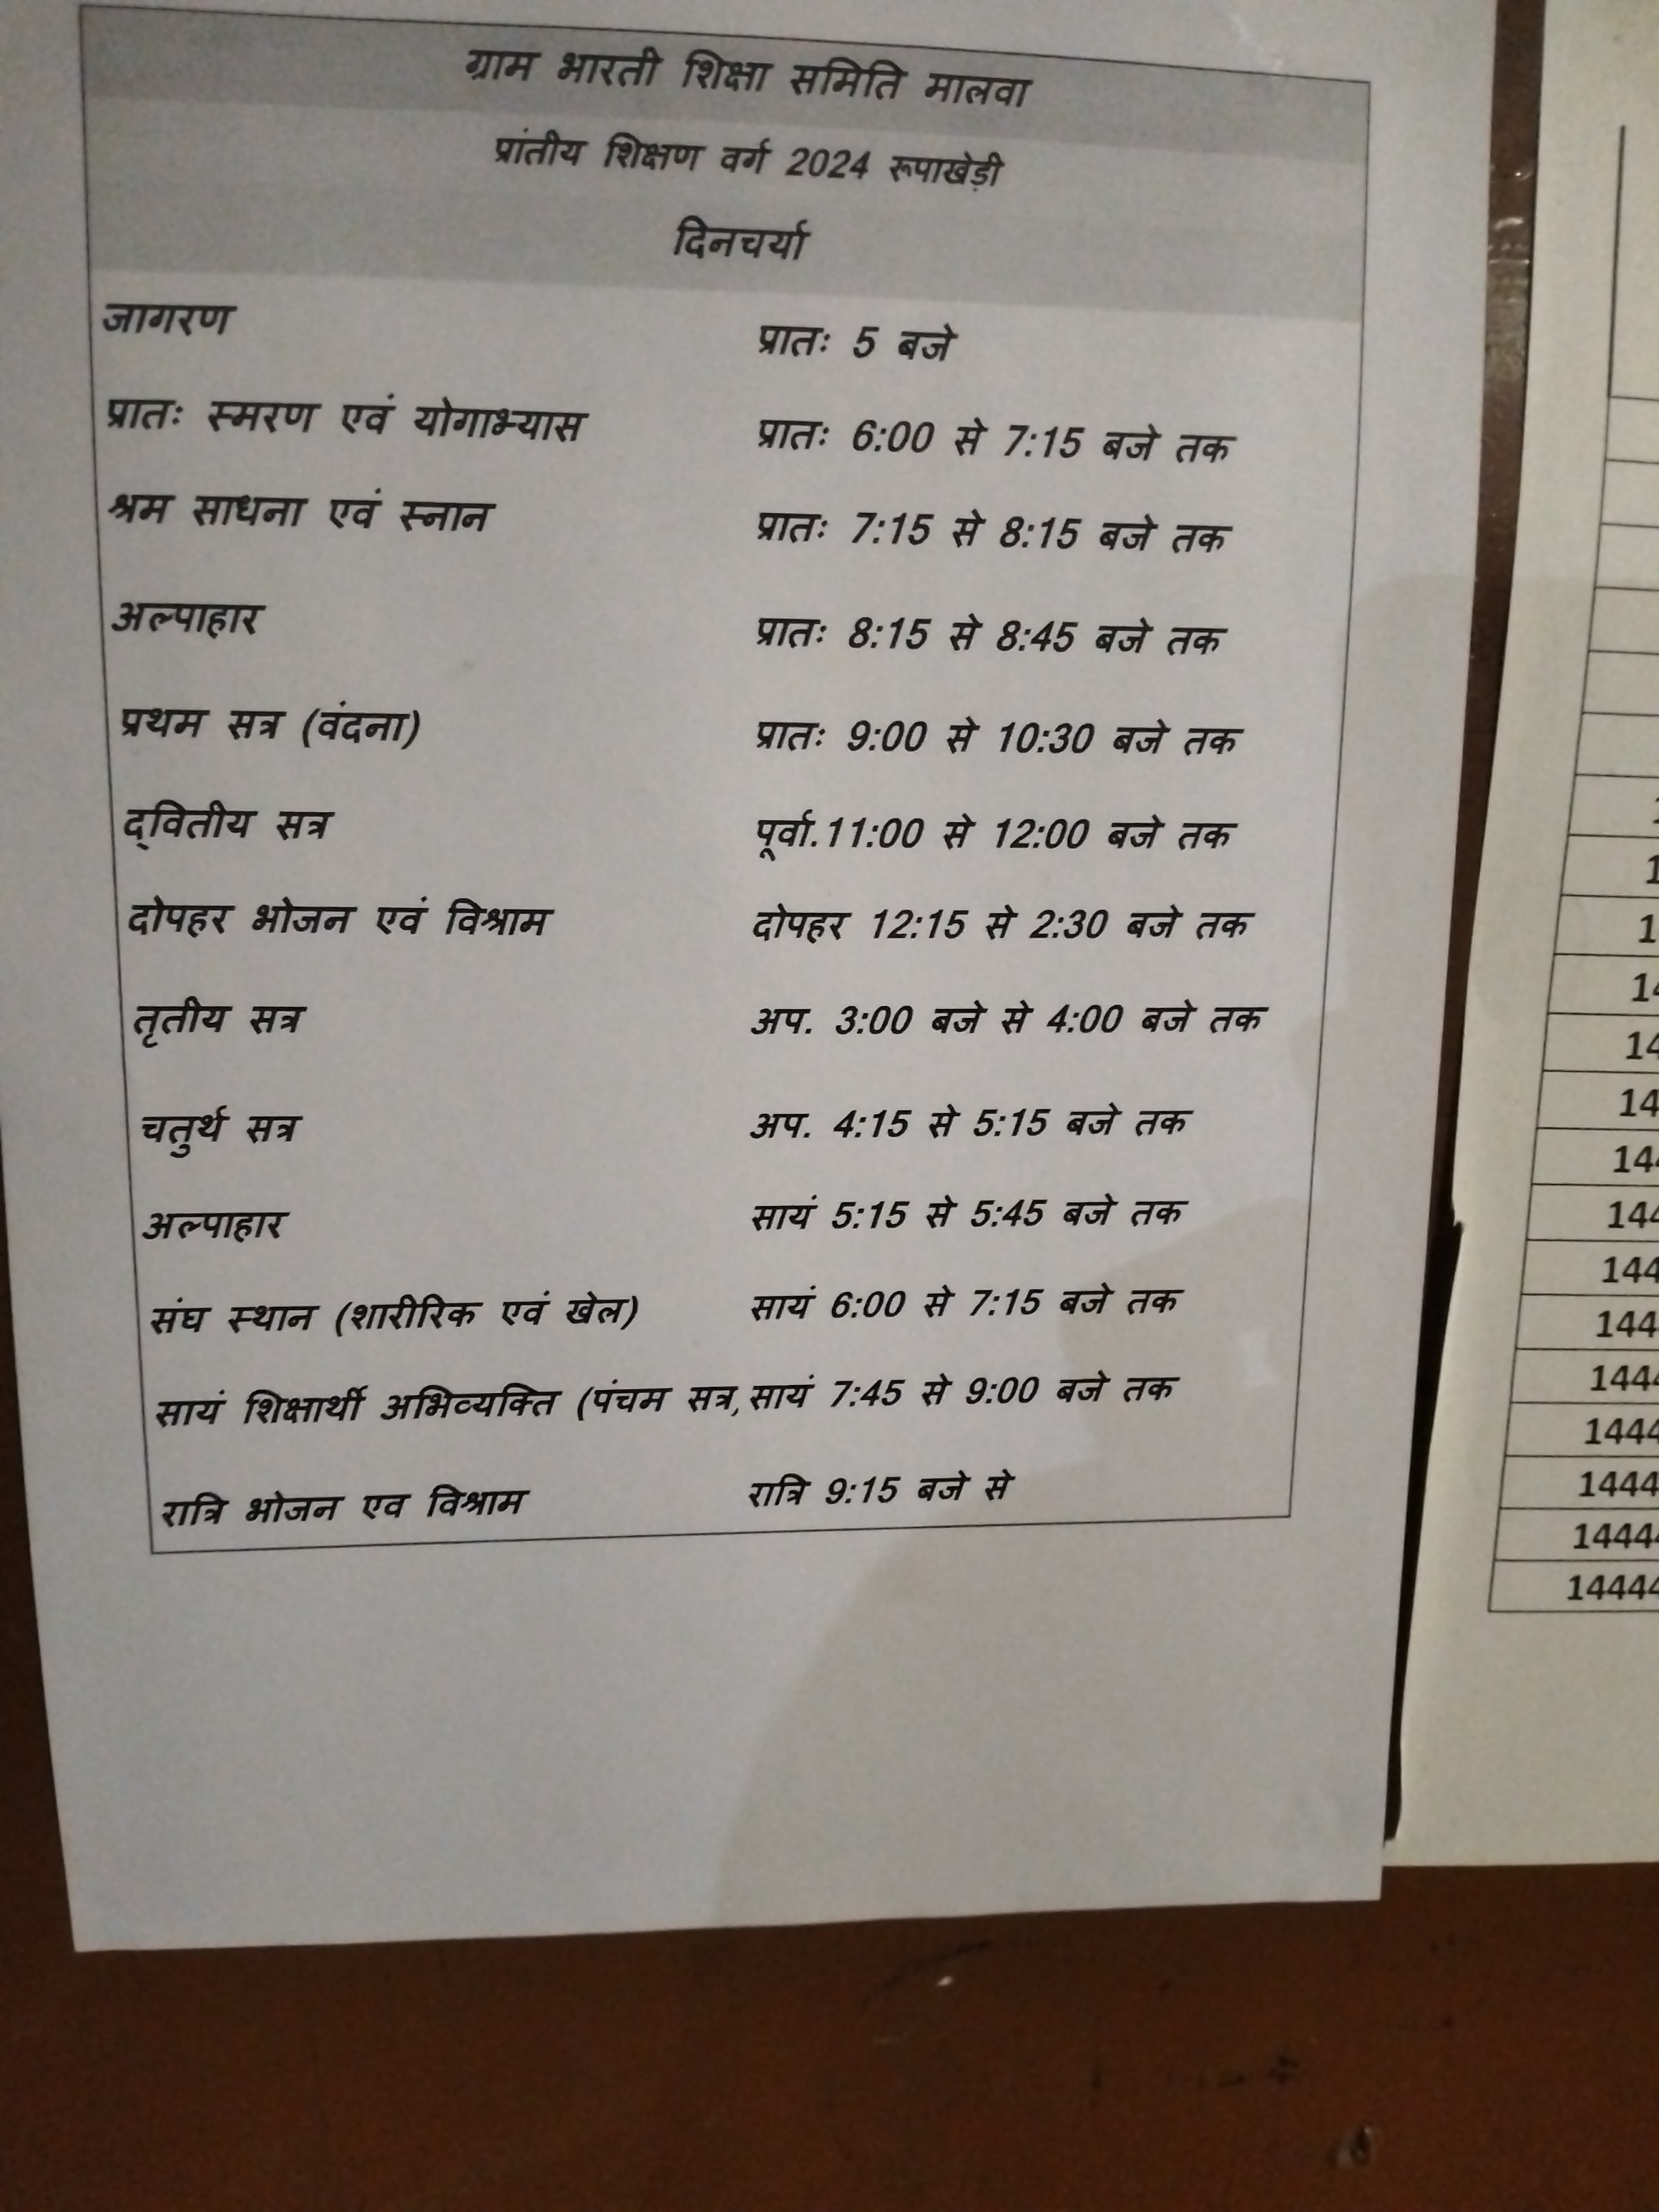 ग्राम भारती शिक्षा समिति मालवा
प्रांतीय शिक्षण वर्ग 2024 रूपाखेड़ी
दिनचर्या
जागरण प्रातः 5 बजे
प्रातः स्मरण एवं योगाभ्यास प्रातः 6:00 से 7:15 बजे तक
श्रम साधना एवं स्नान प्रातः 7:15 से 8:15 बजे तक
अल्पाहार प्रातः 8:15 से 8:45 बजे तक
प्रथम सत्र (वंदना) प्रातः 9:00 से 10:30 बजे तक
द्वितीय सत्र पूर्वा.11:00 से 12:00 बजे तक
दोपहर भोजन एवं विश्राम दोपहर 12:15 से 2:30 बजे तक
तृतीय सत्र अप. 3:00 बजे से 4:00 बजे तक
चतुर्थ सत्र अप. 4:15 से 5:15 बजे तक
अल्पाहार सायं 5:15 से 5:45 बजे तक
संघ स्थान (शारीरिक एवं खेल) सायं 6:00 से 7:15 बजे तक
सायं शिक्षार्थी अभिव्यक्ति (पंचम सत्र, सायं 7:45 से 9:00 बजे तक
रात्रि भोजन एव विश्राम रात्रि 9:15 बजे से